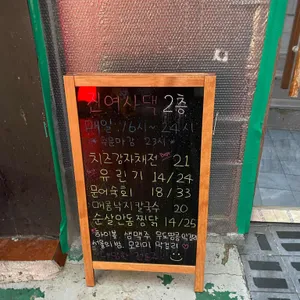 신여사댁 2층
매일 16시~24시
주문마감 23시
치즈감자채전 21
유린기 14/24
문어숙회 18/33
매콤낙지칼국수 20
순살안동찜닭 14/25
하이볼 생맥주